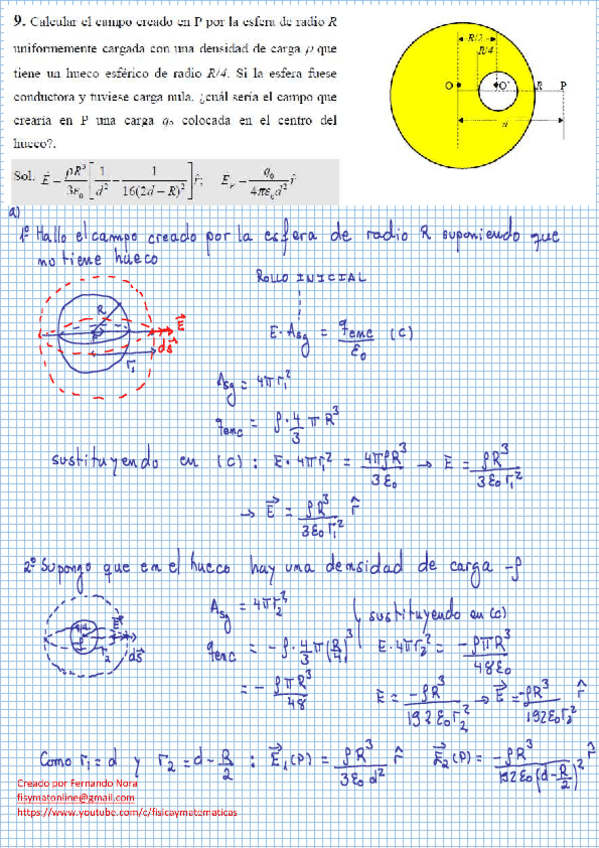 9. Calcular el campo creado en P por la esfera de radio R
uniformemente cargada con una densidad de carga ρ que
tiene un hueco esférico de radio R/4. Si la esfera fuese
conductora y tuviese carga nula, ¿cuál sería el campo que
crearía en P una carga q₀ colocada en el centro del
hueco?.
Sol. E⃗ = ρR³/3ε₀ [1/d² - 1/16(2d-R)²] r̂; E⃗ₚ = q₀/4πε₀d² r̂
R/2
R/4
O O' R P
d
a)
1º Hallo el campo creado por la esfera de radio R suponiendo que
no tiene hueco
ROLLO INICIAL
R
ρ
r₁
E⃗
dS⃗
E·Asg = qenc/ε₀ (C)
Asg = 4πr₁²
qenc = ρ·4/3 πR³
sustituyendo en (C): E·4πr₁² = 4πρR³/3ε₀ → E = ρR³/3ε₀r₁²
→ E⃗ = ρR³/3ε₀r₁² r̂
2º Supongo que en el hueco hay una densidad de carga -ρ
r₂
E⃗
dS⃗
Asg = 4πr₂²
qenc = -ρ·4/3 π(R/4)³
= -ρπR³/48
sustituyendo en (C)
E·4πr₂² = -ρπR³/48ε₀
E = -ρR³/192ε₀r₂² → E⃗ = -ρR³/192ε₀r₂² r̂
Como r₁ = d y r₂ = d - R/2 : E⃗₁(P) = ρR³/3ε₀d² r̂ E⃗₂(P) = -ρR³/192ε₀(d-R/2)² r̂
Creado por Fernando Nora
fisymatonline@gmail.com
https://www.youtube.com/c/fisicaymatematicas